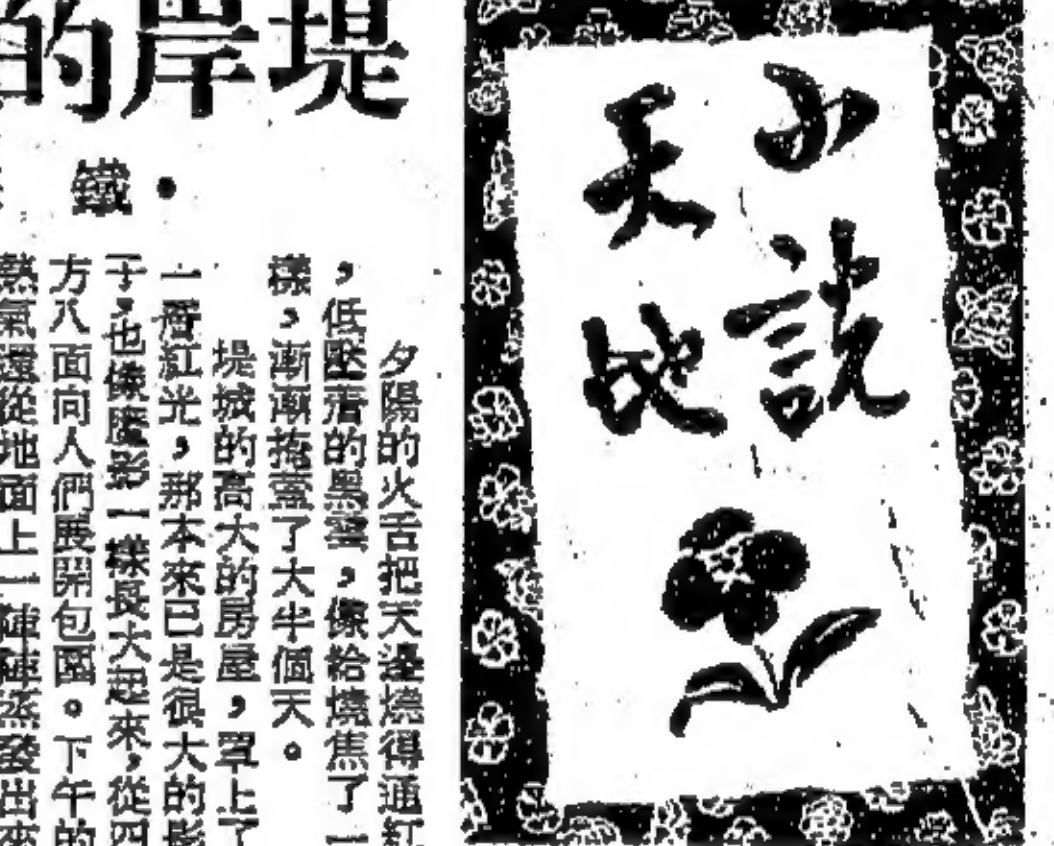 小說
天地
堤岸的
・鐵
夕陽的火舌把天邊燒得通紅
，低壓着的黑雲，像給燒焦了一
樣，漸漸掩蓋了大半個天。
堤城的高大的房屋，罩上了
一層紅光，那本來已是很大的影
子，也像魔影一樣長大起來，從四
方八面向人們展開包圍。下午的
熱氣還從地面上一陣陣蒸發出來